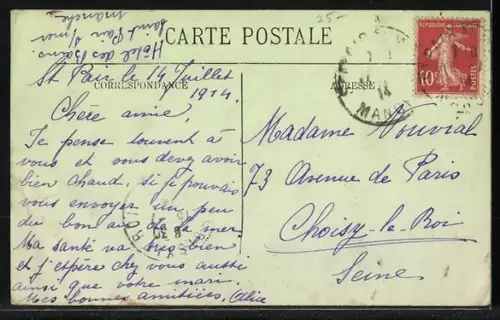 25-
Hôtel des Bains.
Saint Pair s/mer
Manche
CARTE POSTALE
CORRESPONDANCE
ADRESSE
St Pair le 14 Juillet
1914.
Chère amie,
Je pense souvent à
vous et vous devez avoir
bien chaud, si je pouvais
vous envoyer un peu
du bon air de la mer.
Ma santé va très bien
et j'espère chez vous aussi
ainsi que votre mari.
Mes bonnes amitiées, Alice
Madame Vouvial
73 Avenue de Paris
Choisy-le-Roi
Seine
10c
POSTES
14
MANCHE